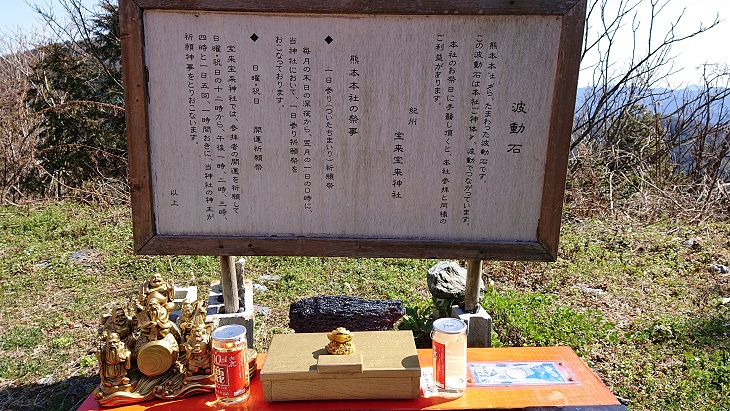 波動石
熊本本社から、たまわった波動石です。
この波動石は本社ご神体と、波動でつながっています。
本社のお祭日に手繋し頂くと、本社参拝と同様の
ご利益があります。
紀州 宝来宝来神社
熊本本社の祭事
◆ 一日参り(ついたちまいり)祈願祭
毎月の末日の深夜から、翌月の一日の0時に、
当神社において、一日参り祈願祭を
おこなっております。
◆ 日曜・祝日 開運祈願祭
宝来宝来神社では、参拝者の開運を祈願して
日曜・祝日の十二時から、午後一時、二時、三時、
四時と一日五回、一時間おきに、当神社の神主が
祈願神事をとりおこないます。
以上